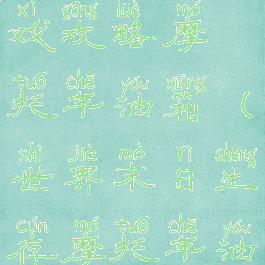 xì gōng lüè mó
戏攻略摩
tuō chē yóu xiāng
托车油箱(
shì jiè mò rì shēng
世界末日生
cún mó tuō chē yóu
存摩托车油